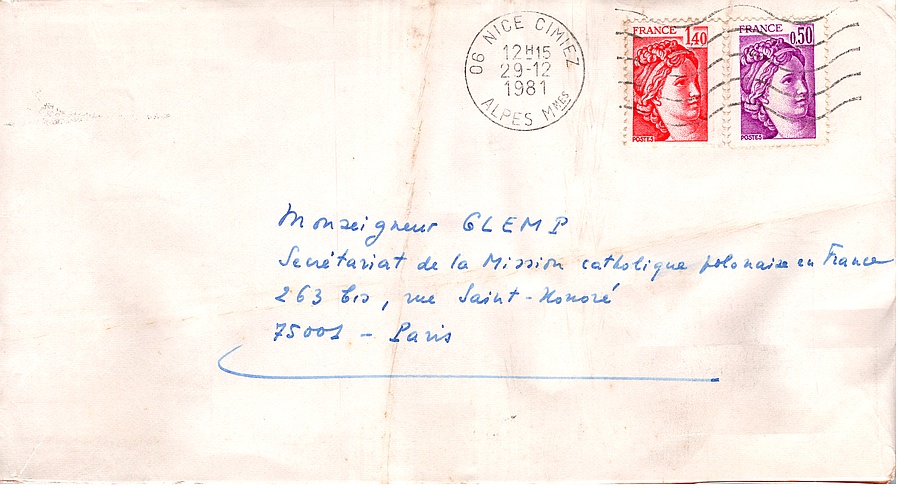 06 NICE CIMIEZ
12H15
29-12
1981
ALPES MMES
FRANCE 1,40
POSTES
FRANCE 0,50
POSTES
Monseigneur GLEMP
Secrétariat de la Mission catholique polonaise en France
263 bis, rue Saint-Honoré
75001 - Paris